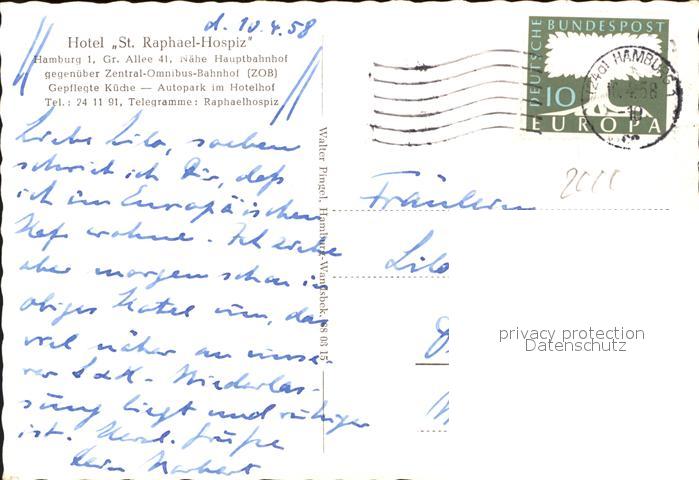 d. 10.4.58
Hotel „St. Raphael-Hospiz"
Hamburg 1, Gr. Allee 41, Nähe Hauptbahnhof
gegenüber Zentral-Omnibus-Bahnhof (ZOB)
Gepflegte Küche — Autopark im Hotelhof
Tel.: 24 11 91, Telegramme: Raphaelhospiz
Liebe Lilo, soeben
schrieb ich Dir, daß
ich im Europäischen
Hof wohne. Ich ziehe
aber morgen schon in
obiges Hotel um, das
viel näher an unse-
rer S&H- Niederlas-
sung liegt und ruhiger
ist. Herzl. Grüße
Dein Norbert
Walter Pingel, Hamburg-Wandsbek, 68 03 15
DEUTSCHE BUNDESPOST
10
EUROPA
HAMBURG
4.58
2000
Fräulein
Lilo
privacy protection
Datenschutz